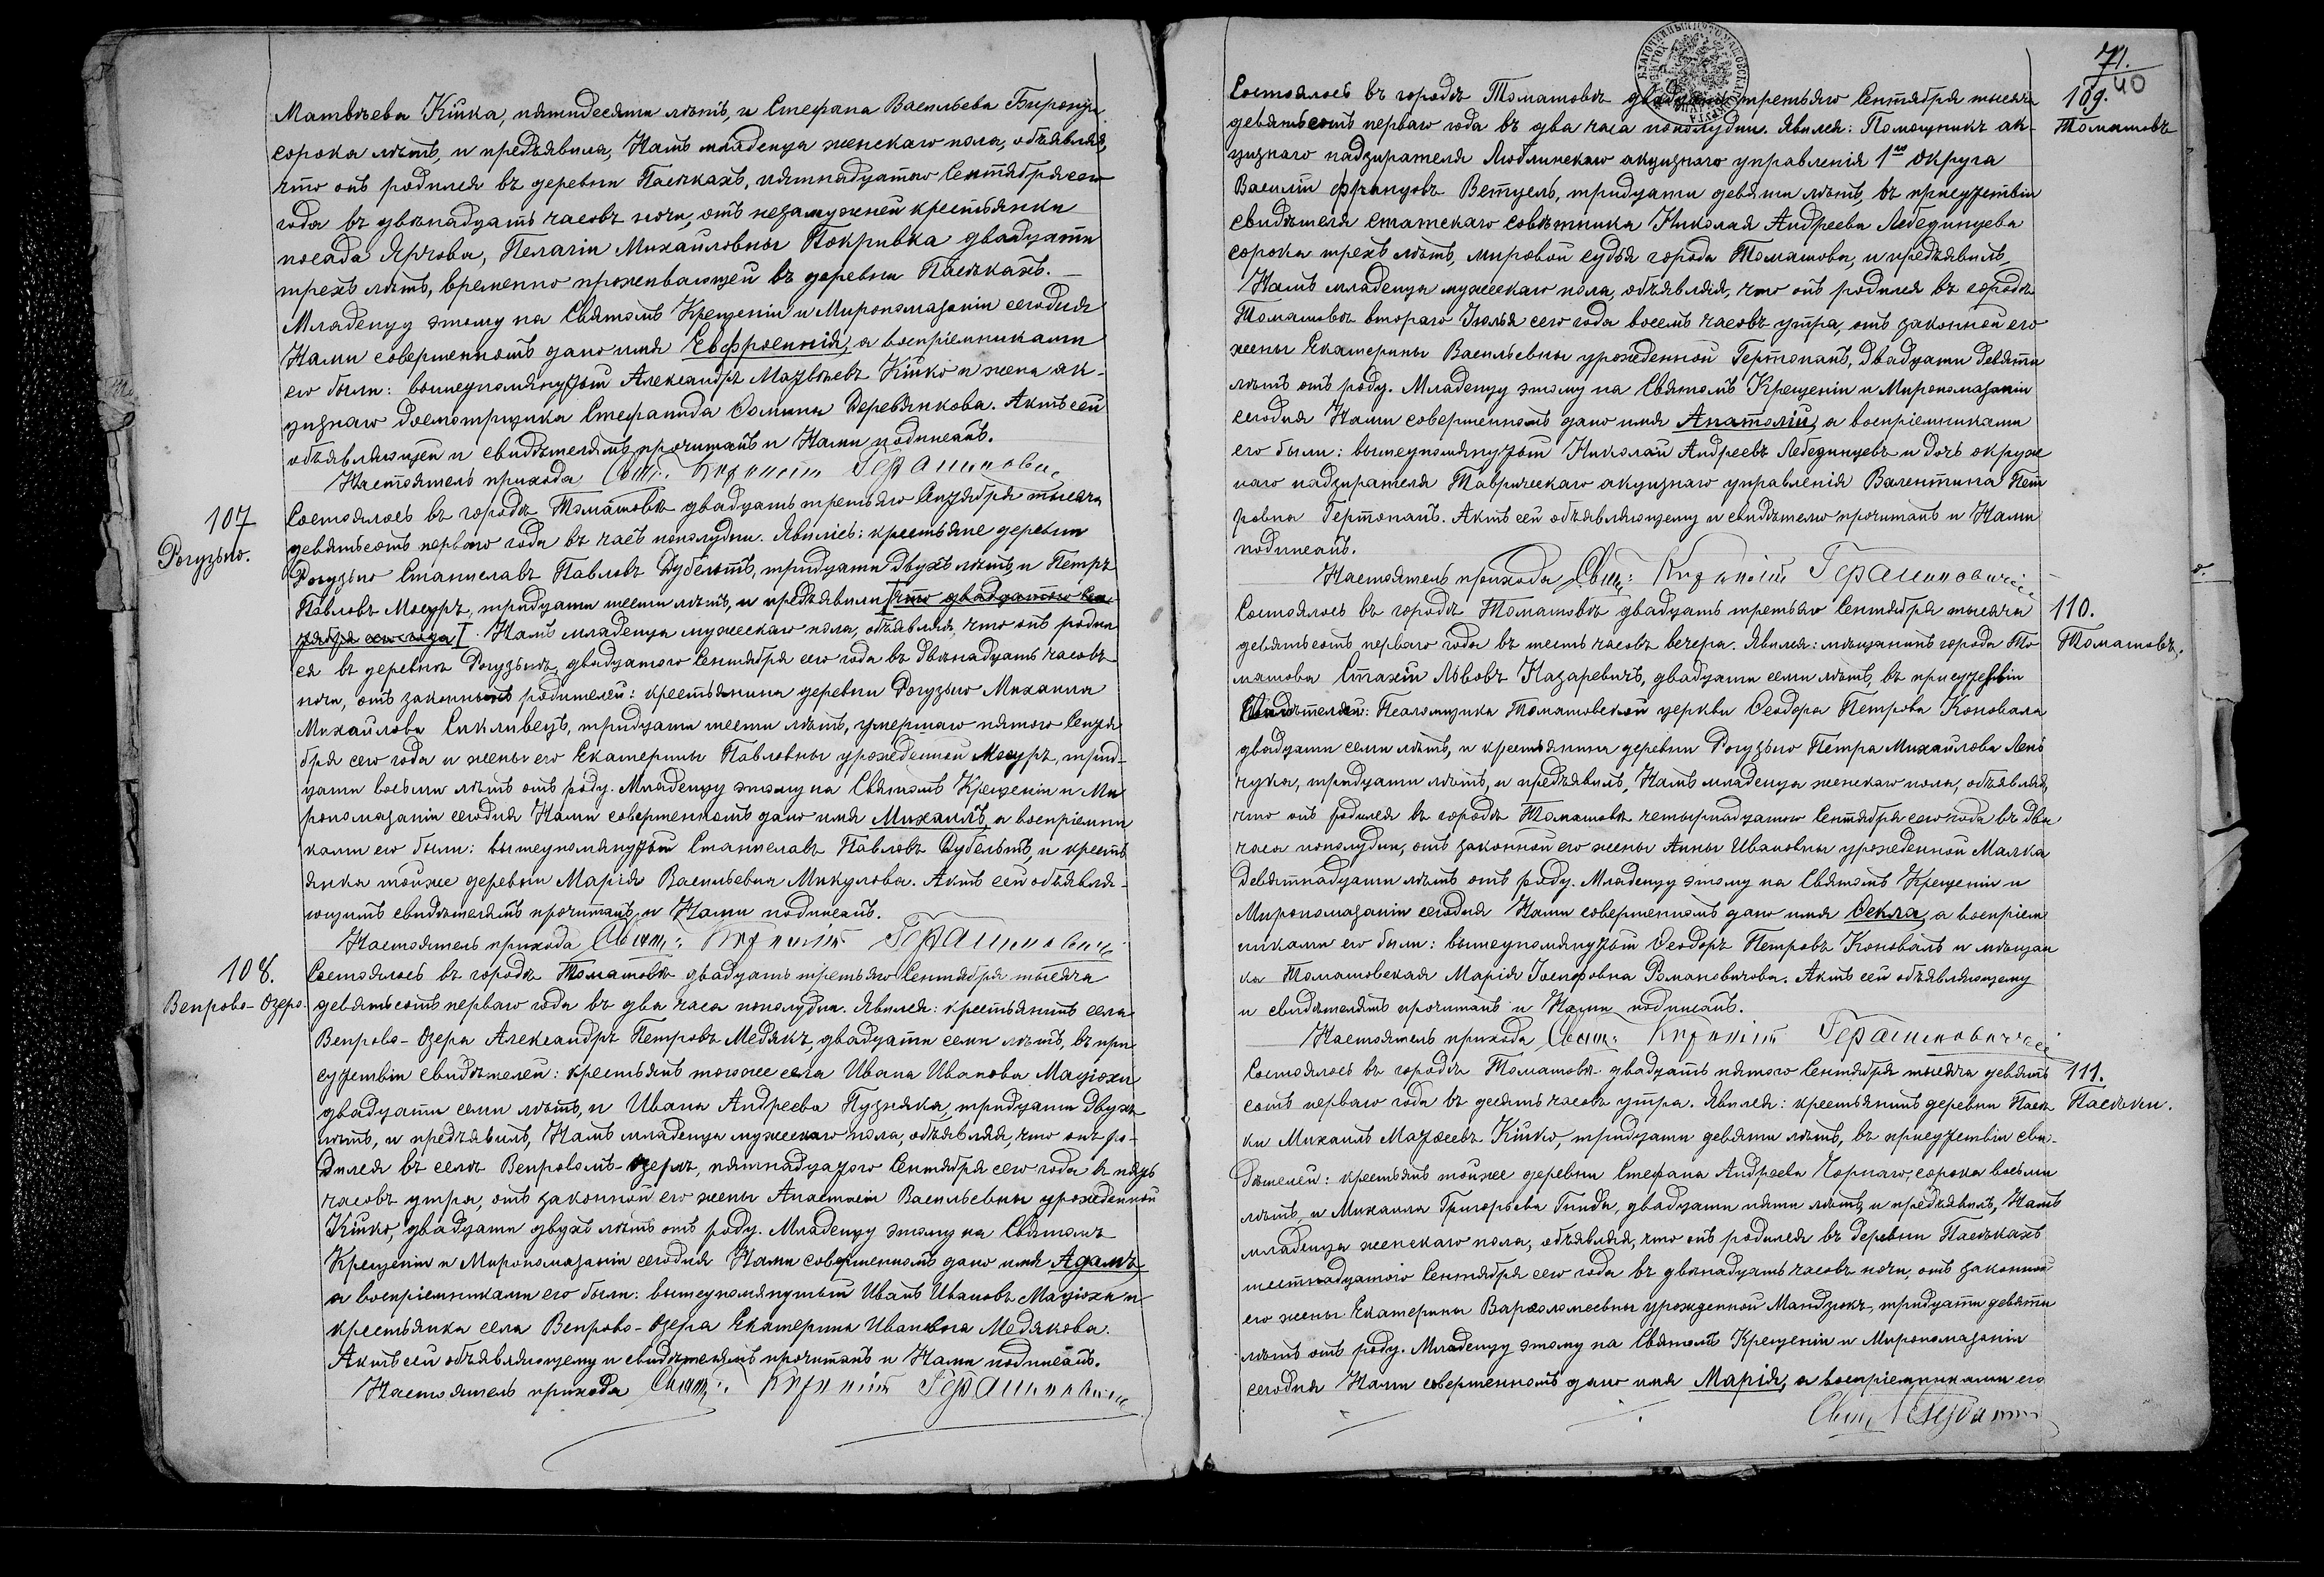 Матвѣева Кѣйка, пятидесяти лѣтъ, и Стефана Васильева Бирокуи
сорока лѣтъ, и предъявила, Намъ младенца женскаго пола, объявляя,
что онъ родился въ деревни Пасѣкахъ, пятнадцатого Сентября сего
года въ двѣнадцать часовъ ночи, отъ незамужней крестьянки
посада Ярчова, Пелагіи Михайловны Покривка двадцати
трехъ лѣтъ, временно проживающей въ деревни Пасѣкахъ. —
Младенцу этому на Святомъ Крещеніи и Миропомазаніи сегодня
Нами совершенномъ дано имя Евфросинія, а воспріемниками
его были: вышеупомянутый Александръ Матвѣевъ Кѣйко и жена ак-
цизнаго досмотрщика Стефанида Ѳомины Деревянкова. Актъ сей
объявляющей и свидѣтелямъ прочитанъ и Нами подписанъ.
Настоятель прихода Свящ:
107
Рогузьно.
Состоялось въ городѣ Томашовѣ двадцать третьяго Сентября тысяча
девятьсотъ перваго года въ часъ пополудни. Явились: крестьяне деревни
Рогузьно Станиславъ Павловъ Дубельтъ, тридцати двухъ лѣтъ, и Петръ
Павловъ Мосуръ, тридцати шести лѣтъ, и предъявили что двадцатого Сен
тября сего года Намъ младенца мужескаго пола, объявляя, что онъ родил
ся въ деревнѣ Рогузьнѣ, двадцатого Сентября сего года въ двѣнадцать часовъ
ночи, отъ законныхъ родителей: крестьянина деревни Рогузьно Михаила
Михайлова Сикливецъ, тридцати шести лѣтъ, умершаго пятого Сентя
бря сего года и жены его Екатерины Павловны урожденной Мосуръ, трид-
цати восьми лѣтъ отъ роду. Младенцу этому на Святомъ Крещеніи и Ми
ропомазаніи сегодня Нами совершенномъ дано имя Михаилъ, а воспріемни
ками его были: вышеупомянутый Станиславъ Павловъ Дубельтъ, и кресть
янка тойже деревни Марія Васильевна Микулова. Актъ сей объявля-
ющимъ свидѣтелямъ прочитанъ и Нами подписанъ.
Настоятель прихода Свящ:
108.
Венрово-Озеро.
Состоялось въ городѣ Томашовѣ двадцать третьяго Сентября тысяча
девятьсотъ перваго года въ два часа пополудни. Явился: крестьянинъ села
Венрово-Озера Александръ Петровъ Медякъ, двадцати семи лѣтъ, въ при
сутствіи свидѣтелей: крестьянъ тогоже села Ивана Иванова Мацюхи
двадцати семи лѣтъ, и Ивана Андреева Пузняка, тридцати двухъ
лѣтъ, и предъявилъ, Намъ младенца мужескаго пола, объявляя, что онъ ро-
дился въ селѣ Венровомъ-Озерѣ, пятнадцатого Сентября сего года въ пять
часовъ утра, отъ законной его жены Анастасіи Васильевны урожденной
Кѣйко, двадцати двухъ лѣтъ отъ роду. Младенцу этому на Святомъ
Крещеніи и Миропомазаніи сегодня Нами совершенномъ дано имя Адамъ
а воспріемниками его были: вышеупомянутый Иванъ Ивановъ Мацюха и
крестьянка села Венрово-Озера Екатерина Ивановна Медякова.
Актъ сей объявляющему и свидѣтелямъ прочитанъ и Нами подписанъ.
Настоятель прихода Свящ:
71.
40
109.
Томашовъ
Состоялось въ городѣ Томашовѣ двадцать третьяго Сентября тысяча
девятьсотъ перваго года въ два часа пополудни. Явился: Помощникъ ак-
цизнаго надзирателя Люблинскаго акцизнаго управленія 1го Округа
Василій Францовъ Ветцель, тридцати девяти лѣтъ, въ присутствіи
свидѣтеля статскаго совѣтника Николая Андреева Лебединцева
сорока трехъ лѣтъ, мировой судья города Томашова, и предъявилъ,
Намъ младенца мужескаго пола, объявляя, что онъ родился въ городѣ
Томашовѣ второго Іюлья сего года восемь часовъ утра, отъ законной его
жены Екатерины Васильевны урожденной Гертопанъ, двадцати девяти
лѣтъ отъ роду. Младенцу этому на Святомъ Крещеніи и Миропомазаніи
сегодня Нами совершенномъ дано имя Анатолій, а воспріемниками
его были: вышеупомянутый Николай Андреевъ Лебединцевъ и дочь окруж
наго надзирателя Таврическаго акцизнаго управленія Валентина Пет
ровна Гертопанъ. Актъ сей объявляющему и свидѣтелю прочитанъ и Нами
подписанъ.
Настоятель прихода Свящ:
110.
Томашовъ.
Состоялось въ городѣ Томашовѣ двадцать третьяго Сентября тысяча
девятьсотъ перваго года въ шесть часовъ вечера. Явился: мѣщанинъ города То
машова Стахій Львовъ Назаревичъ, двадцати семи лѣтъ, въ присутствіи
Свидѣтелей: Псаломщика Томашовской церкви Ѳеодора Петрова Коновала
двадцати семи лѣтъ, и крестьянина деревни Рогузьно Петра Михайлова Лень
чука, тридцати лѣтъ, и предъявилъ, Намъ младенца женскаго пола, объявляя,
что онъ родился въ городѣ Томашовѣ четырнадцатого Сентября сего года въ два
часа пополудни, отъ законной его жены Анны Ивановны урожденной Малка
девятнадцати лѣтъ отъ роду. Младенцу этому на Святомъ Крещеніи и
Миропомазаніи сегодня Нами совершенномъ дано имя Ѳекла, а воспріем
никами его были: вышеупомянутый Ѳеодоръ Петровъ Коновалъ и мѣщан
ка Томашовская Марія Іосифовна Романовичова. Актъ сей объявляющему
и свидѣтелямъ прочитанъ и Нами подписанъ.
Настоятель прихода Свящ:
111.
Пасѣки.
Состоялось въ городѣ Томашовѣ двадцать пятого Сентября тысяча девять
сотъ перваго года въ десять часовъ утра. Явился: крестьянинъ деревни Пасѣ
ки Михаилъ Матѳеевъ Кѣйко, тридцати девяти лѣтъ, въ присутствіи сви-
дѣтелей: крестьянъ тойже деревни Стефана Андреева Чорнаго, сорока восьми
лѣтъ, и Михаила Григорьева Гинды, двадцати пяти лѣтъ, и предъявилъ, Намъ
младенца женскаго пола, объявляя, что онъ родился въ деревни Пасѣкахъ
шестнадцатого Сентября сего года въ двѣнадцать часовъ ночи, отъ законной
его жены Екатерины Варѳоломеевны урожденной Мандзюкъ, тридцати девяти
лѣтъ отъ роду. Младенцу этому на Святомъ Крещеніи и Миропомазаніи
сегодня Нами совершенномъ дано имя Марія, а воспріемниками его